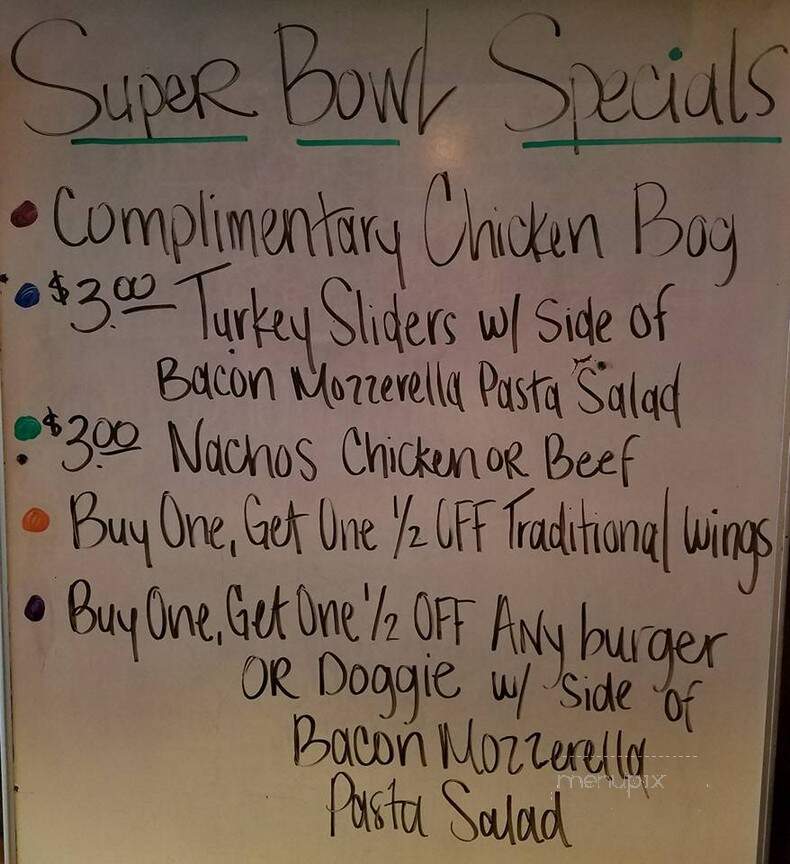 Super Bowl Specials
• Complimentary Chicken Bog
• $3.00 Turkey Sliders w/ Side of
Bacon Mozzerella Pasta Salad
• $3.00 Nachos Chicken OR Beef
• Buy One, Get One 1/2 OFF Traditional Wings
• Buy One, Get One 1/2 OFF ANy burger
OR Doggie w/ Side of
Bacon Mozzerella
Pasta Salad
menupix